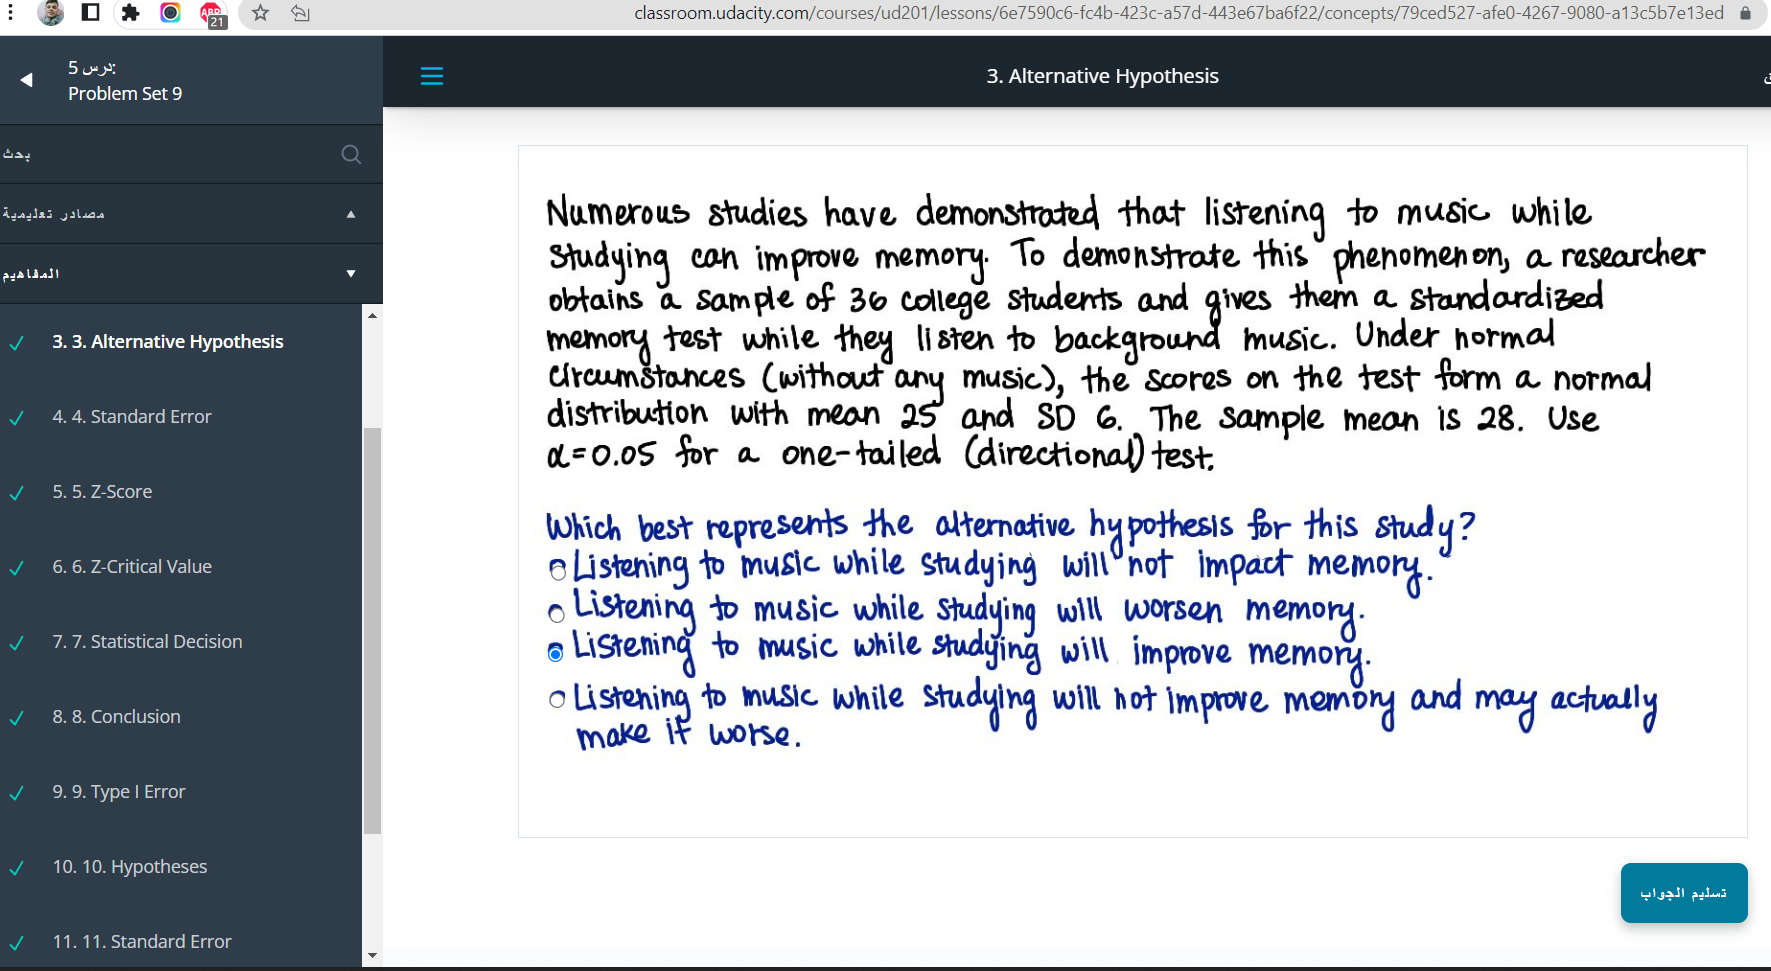 ABP
21
classroom.udacity.com/courses/ud201/lessons/6e7590c6-fc4b-423c-a57d-443e67ba6f22/concepts/79ced527-afe0-4267-9080-a13c5b7e13ed
درس 5:
Problem Set 9
3. Alternative Hypothesis
بحث
مصادر تعليمية
المفاهيم
3. 3. Alternative Hypothesis
4. 4. Standard Error
5. 5. Z-Score
6. 6. Z-Critical Value
7. 7. Statistical Decision
8. 8. Conclusion
9. 9. Type I Error
10. 10. Hypotheses
11. 11. Standard Error
Numerous studies have demonstrated that listening to music while
studying can improve memory. To demonstrate this phenomenon, a researcher
obtains a sample of 36 college students and gives them a standardized
memory test while they listen to background music. Under normal
circumstances (without any music), the scores on the test form a normal
distribution with mean 25 and SD 6. The sample mean is 28. Use
α=0.05 for a one-tailed (directional) test.
Which best represents the alternative hypothesis for this study?
Listening to music while studying will not impact memory.
Listening to music while studying will worsen memory.
Listening to music while studying will improve memory.
Listening to music while studying will not improve memory and may actually
make it worse.
تسليم الجواب